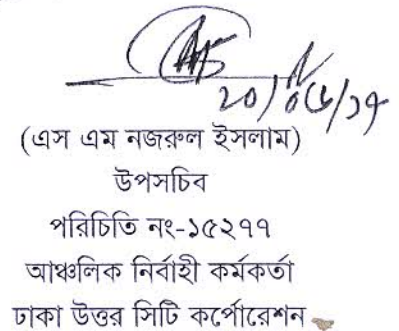 ২০/০৬/১৭
(এস এম নজরুল ইসলাম)
উপসচিব
পরিচিতি নং-১৫২৭৭
আঞ্চলিক নির্বাহী কর্মকর্তা
ঢাকা উত্তর সিটি কর্পোরেশন